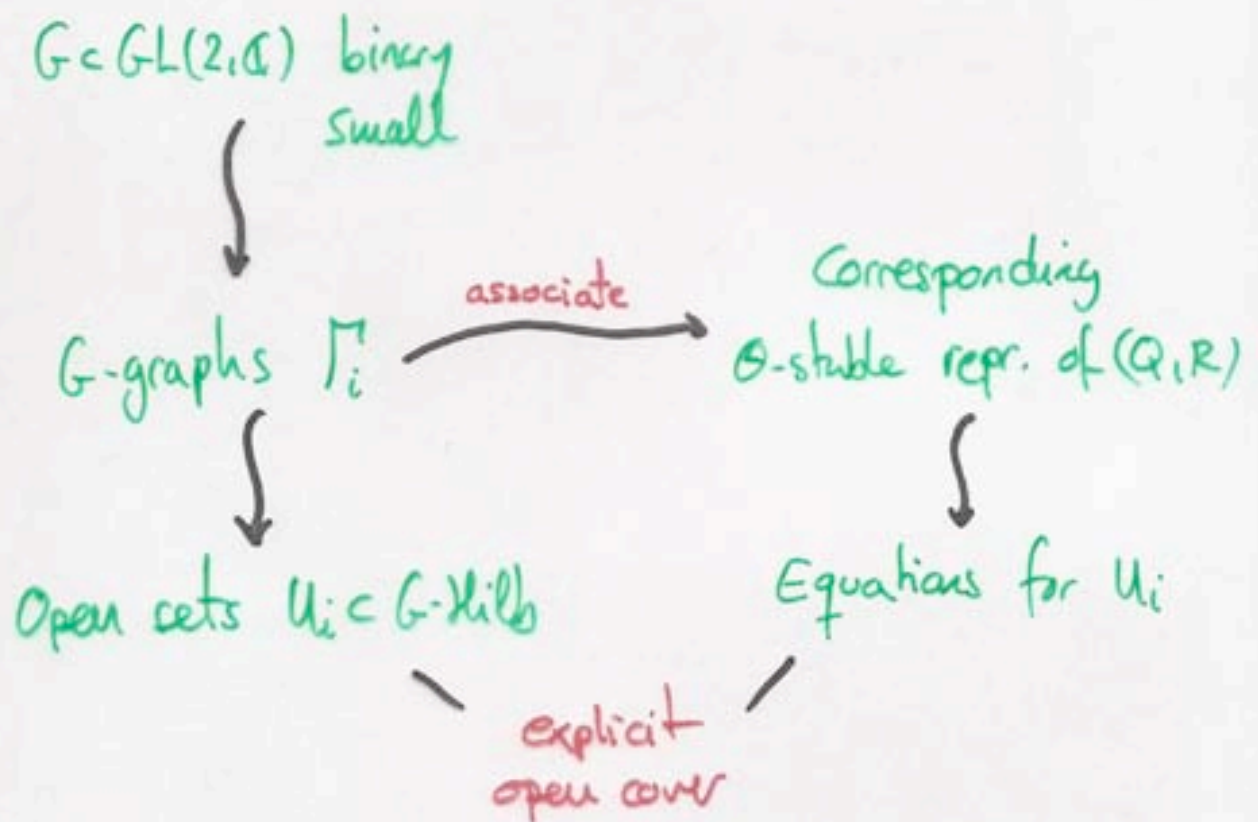 G⊂GL(2,ℂ) binary
small
associate
Corresponding
G-graphs Γi
θ-stable repr. of (Q,R)
Open sets Ui⊂G-Hilb
Equations for Ui
explicit
open cover